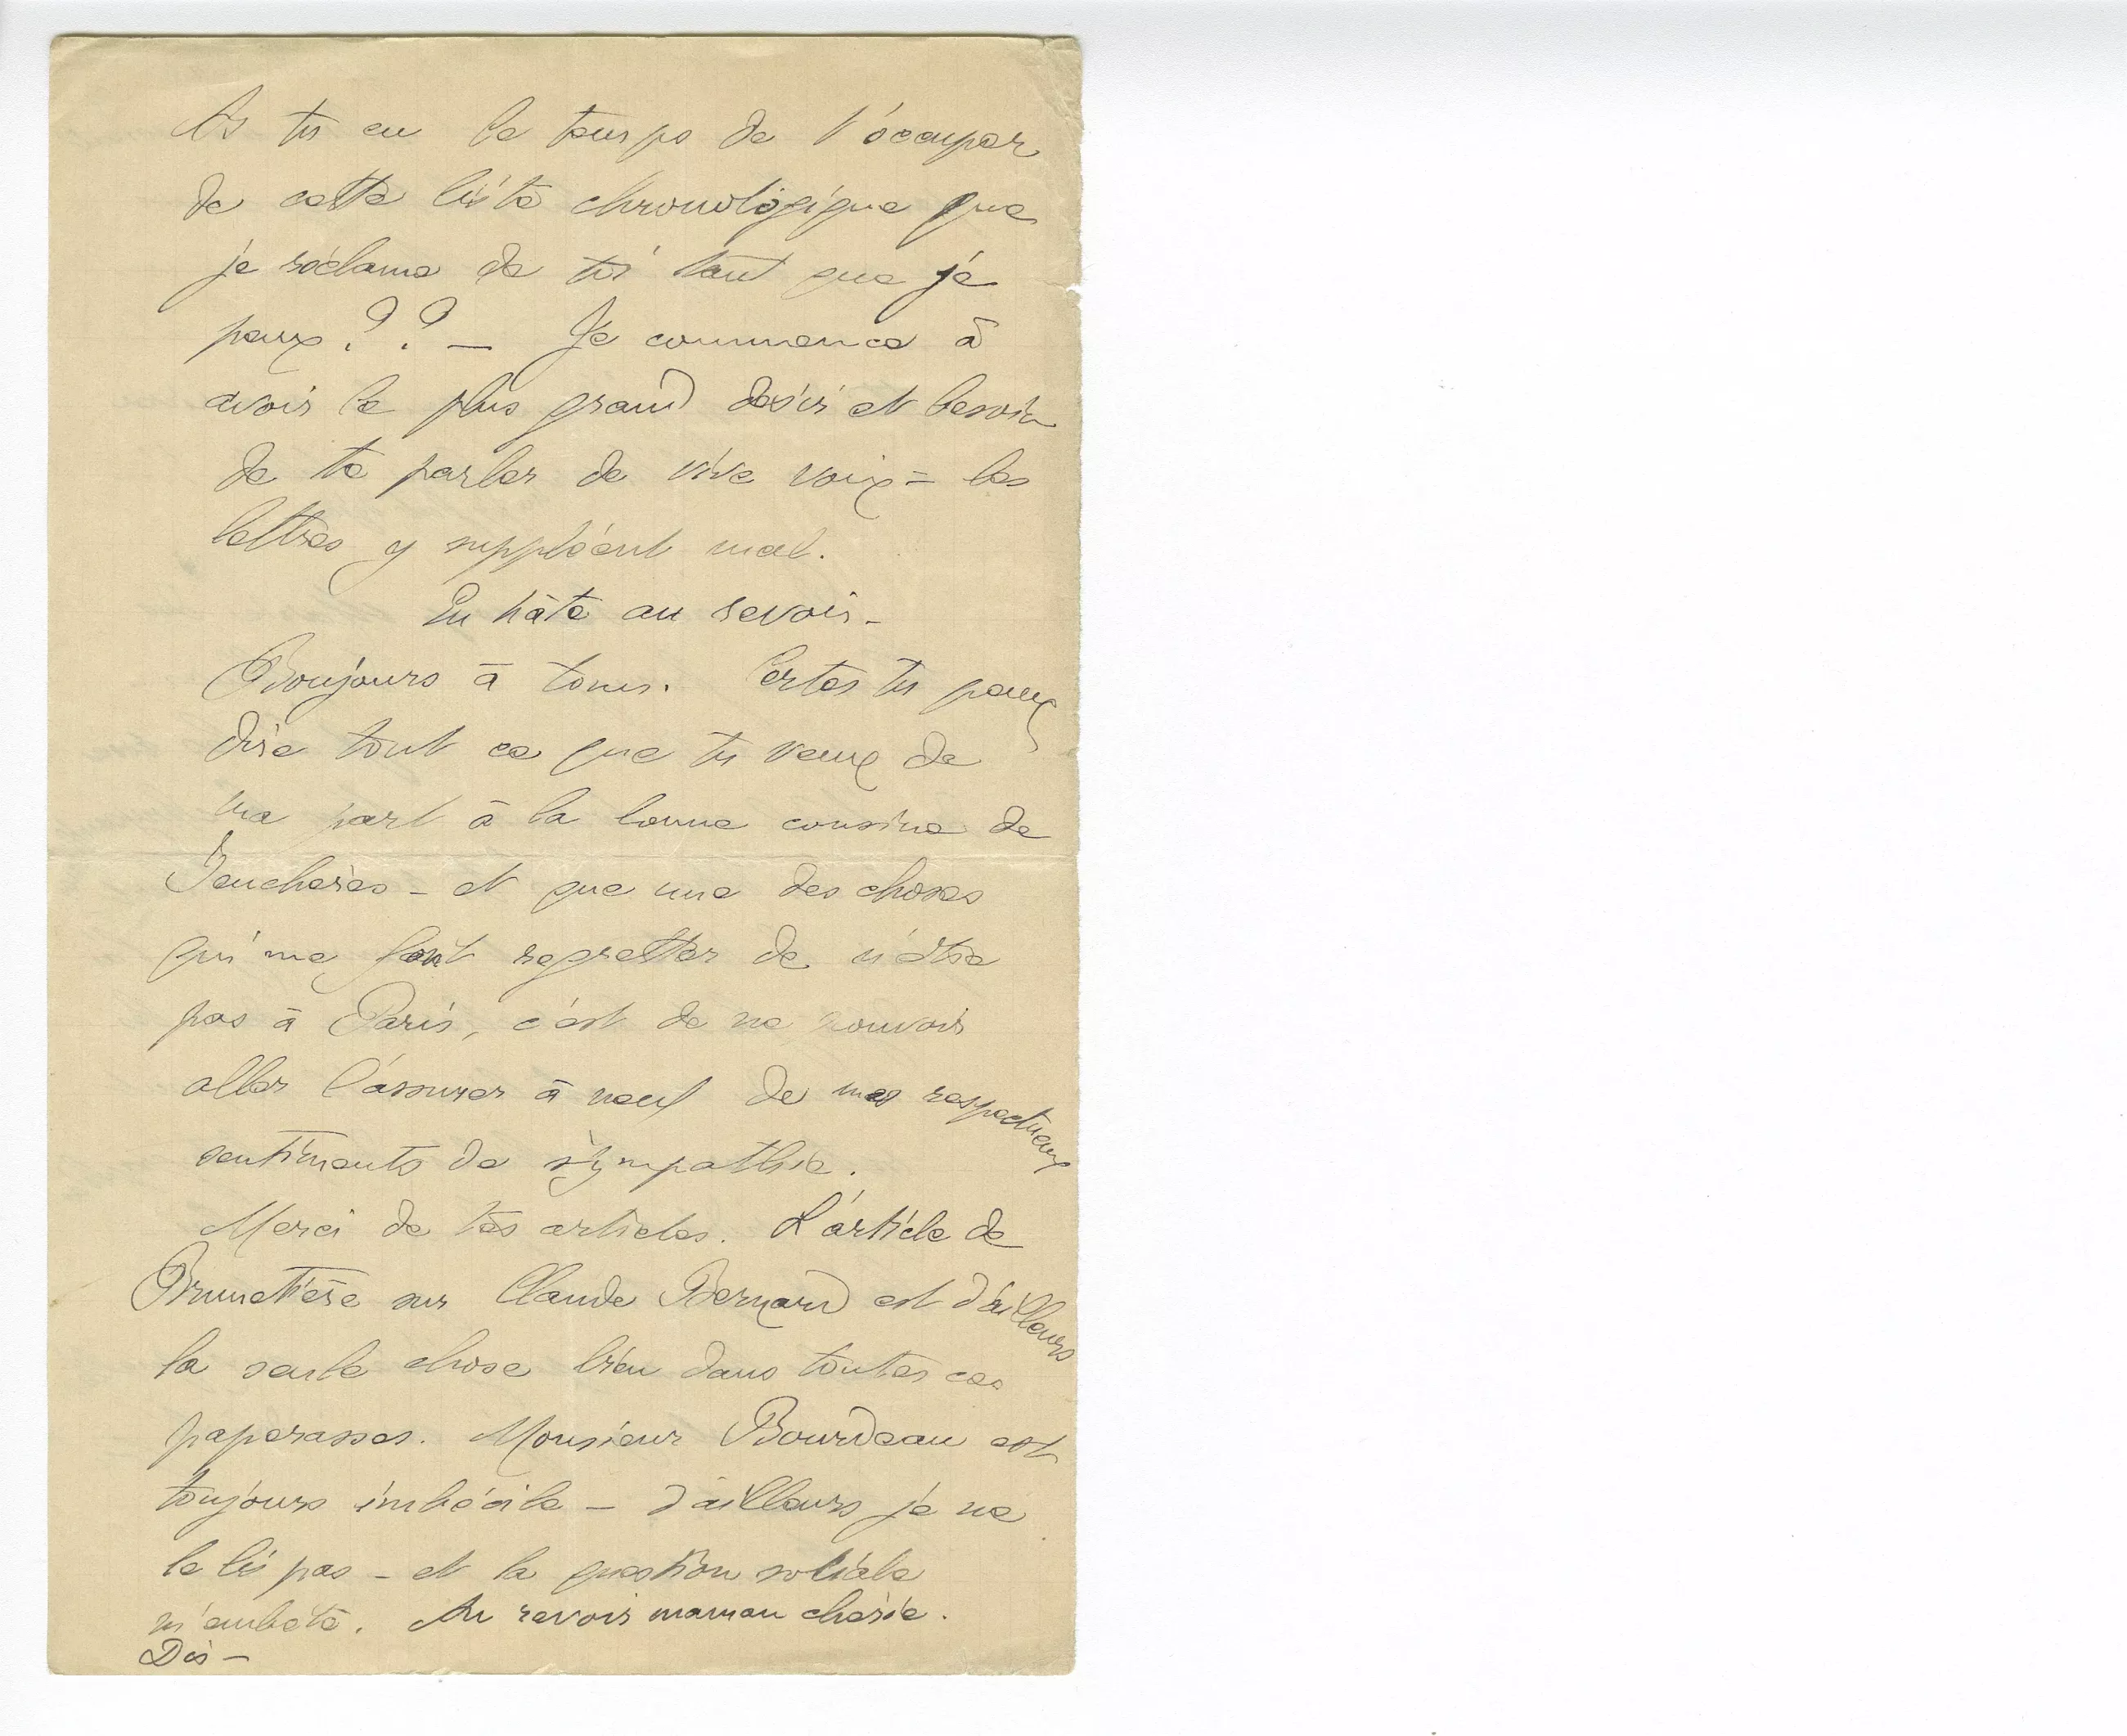 As tu eu le temps de t'occuper
de cette liste chronologique que
je réclame de toi tant que je
peux ? ? — Je commence à
avoir le plus grand désir et besoin
de te parler de vive voix = les
lettres y suppléent mal.
En hâte au revoir -
Bonjours à tous. Certes tu peux
dire tout ce que tu veux de
ma part à la bonne cousine de
- et que une des choses
qui me font regretter de n'être
pas à Paris, c'est de ne pouvoir
aller l'assurer à neuf de mes respectueux
sentiments de sympathie.
Merci de tes articles. L'article de
Brunetière sur Claude Bernard est d'ailleurs
la seule chose bien dans toutes ces
paperasses. Monsieur Bourdeau est
toujours imbécile — d'ailleurs je ne
le lis pas - et la question sociale
m'embête. Au revoir maman chérie.
Dis -